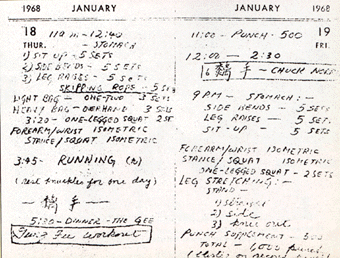 1968 JANUARY
18
THUR.
11 am - 12:40
- STOMACH
1) SIT UP - 5 SETS
2) SIDE BENDS - 5 SETS
3) LEG RAISES - 5 SETS
SKIPPING ROPE - 3 SETS
LIGHT BAG - ONE-TWO - 5 SETS
HEAVY BAG - OVERHAND 5 SETS
3:20 - ONE-LEGGED SQUAT 2 SETS
FOREARM/WRIST ISOMETRIC
STANCE/SQUAT ISOMETRIC
3:45 - RUNNING
(rest knuckles for one day)
手
5:30 - DINNER - THE GEE
Fu workout
JANUARY 1968
19
FRI.
11:00 - PUNCH - 500
12:00 - 2:30
手 - CHUCK
9 PM - STOMACH :-
SIDE BENDS - 5 SETS
LEG RAISES - 5 SETS
SIT-UP - 5 SETS
FOREARM/WRIST ISOMETRIC
STANCE/SQUAT ISOMETRIC
ONE-LEGGED SQUAT - 2 SETS
LEG STRETCHING :-
STAND -
1) straight
2) side
3) knee out
PUNCH SUPPLEMENT - 500
TOTAL - 1,000 punch